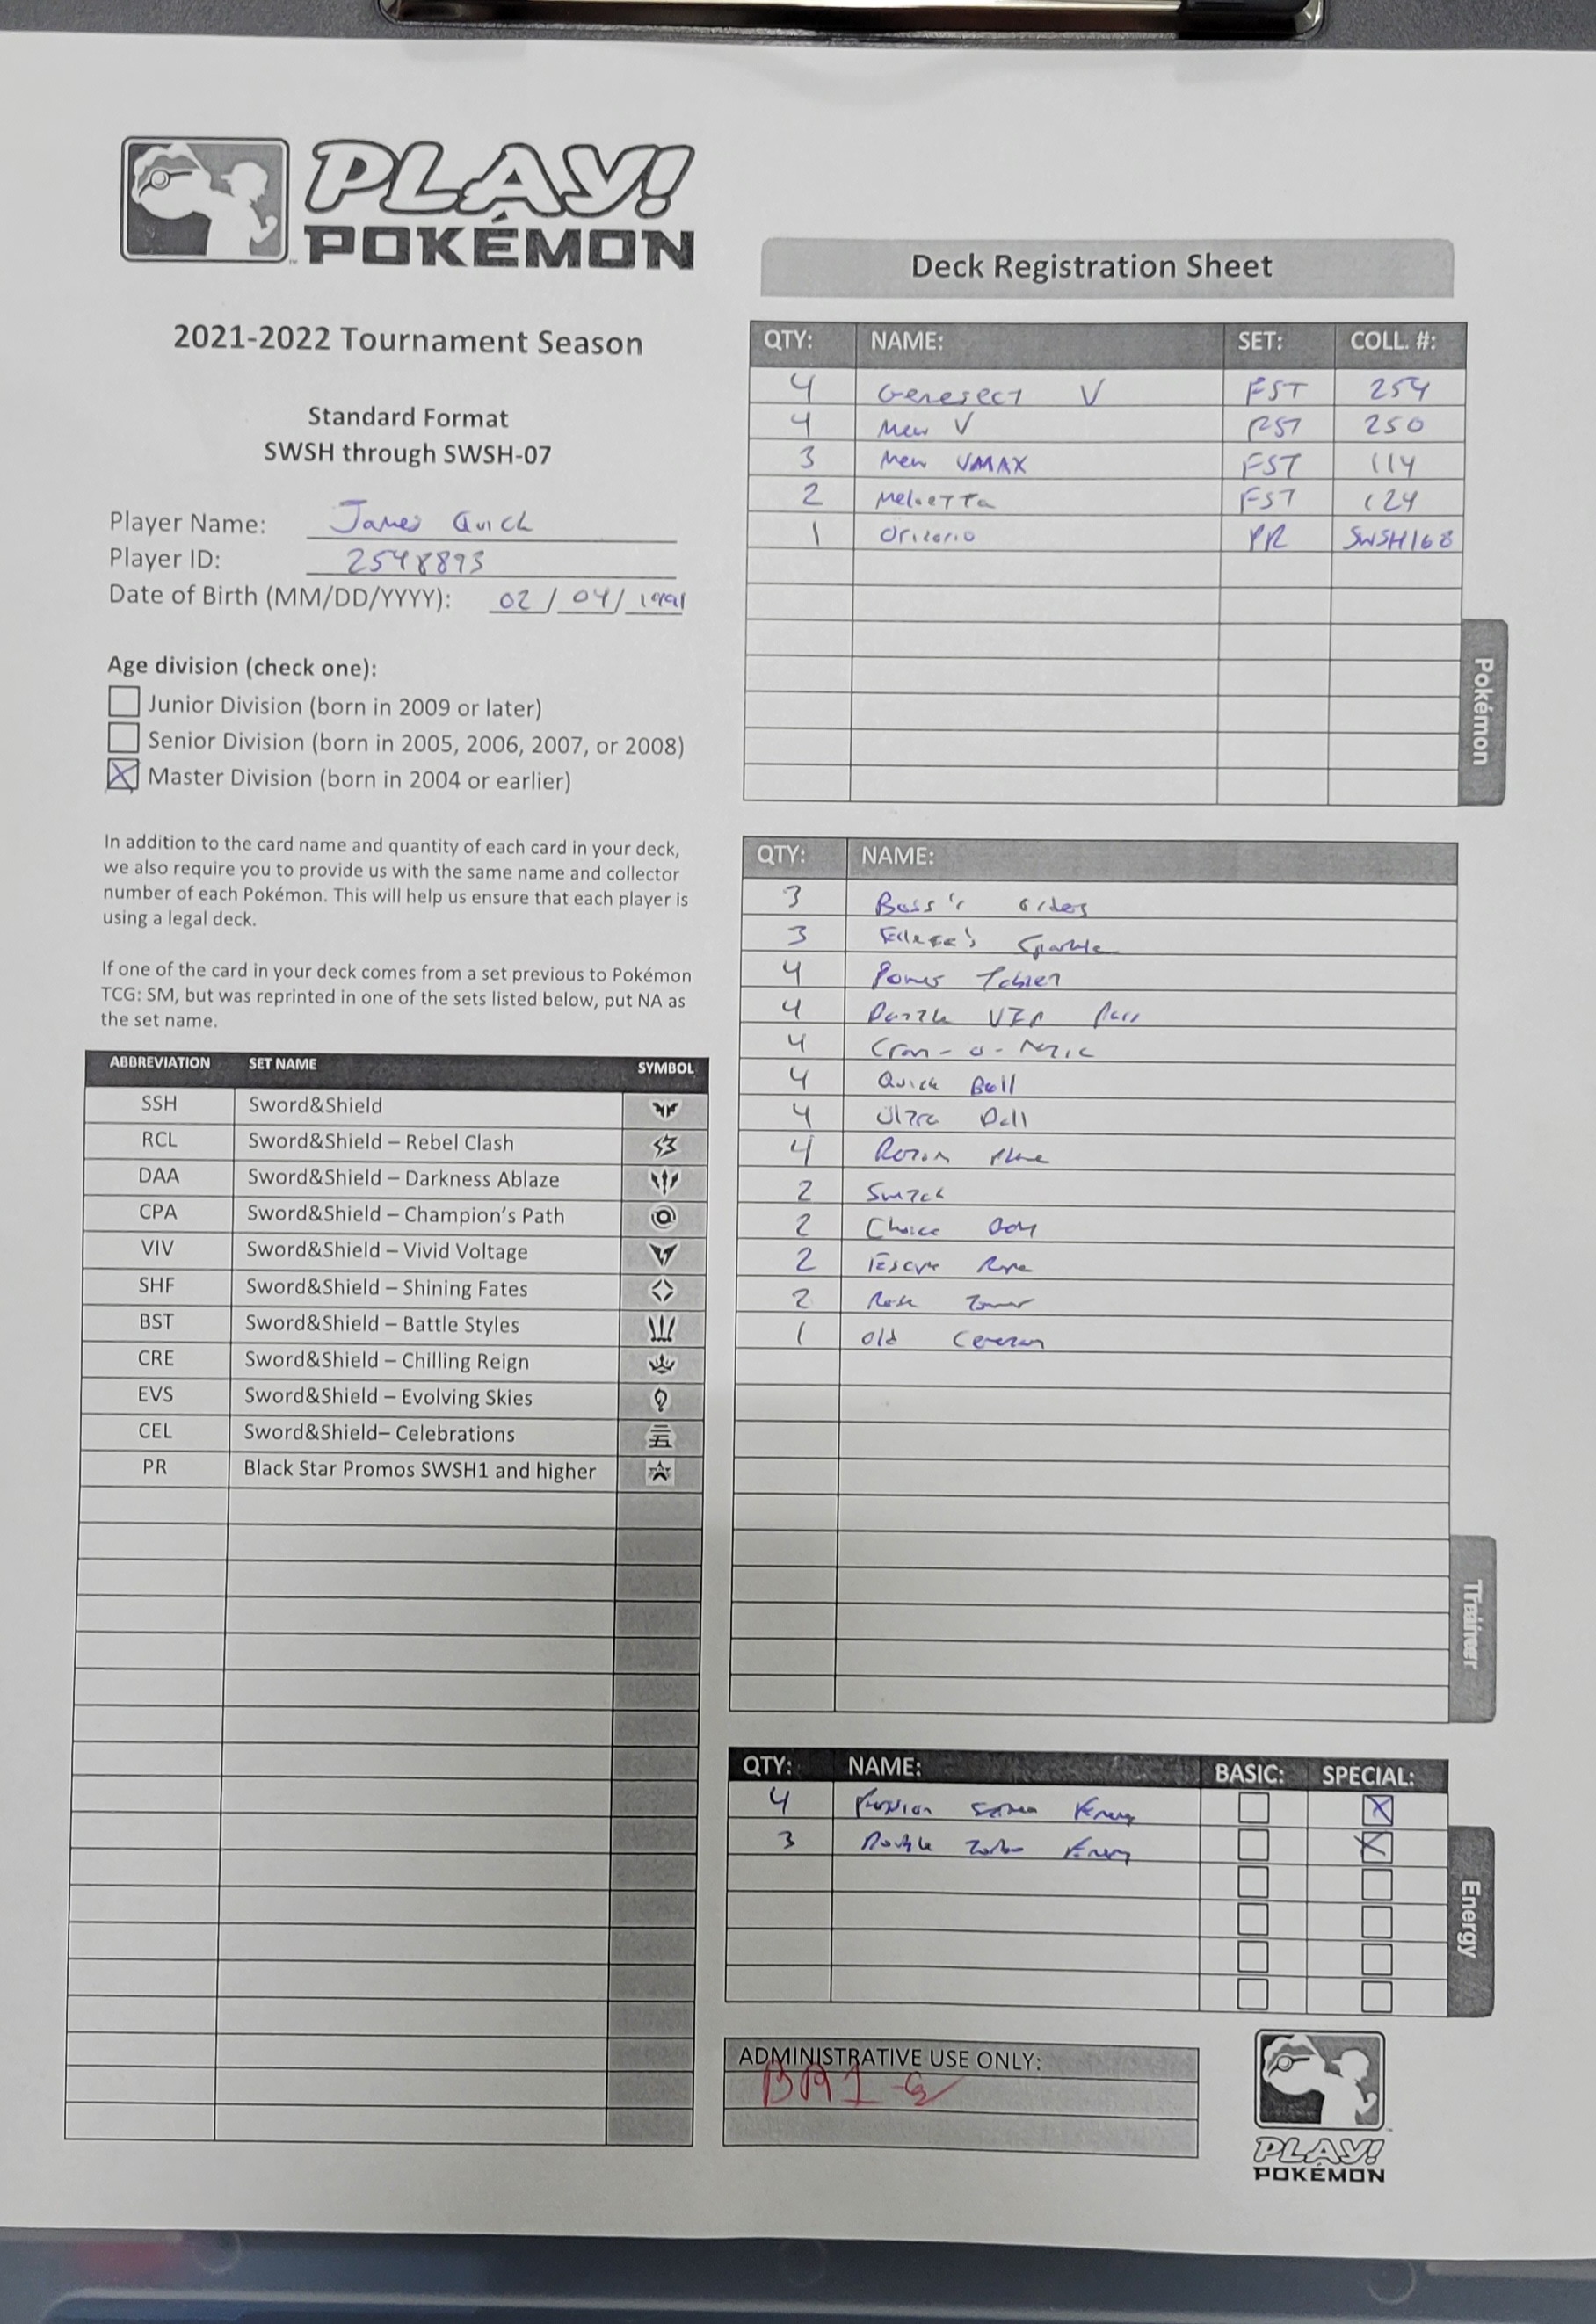 PLAY!
POKÉMON
2021-2022 Tournament Season
Standard Format
SWSH through SWSH-07
Player Name: James Quick
Player ID: 2548893
Date of Birth (MM/DD/YYYY): 02 / 04 / 1991
Age division (check one):
Junior Division (born in 2009 or later)
Senior Division (born in 2005, 2006, 2007, or 2008)
Master Division (born in 2004 or earlier)
In addition to the card name and quantity of each card in your deck,
we also require you to provide us with the same name and collector
number of each Pokémon. This will help us ensure that each player is
using a legal deck.
If one of the card in your deck comes from a set previous to Pokémon
TCG: SM, but was reprinted in one of the sets listed below, put NA as
the set name.
ABBREVIATION SET NAME SYMBOL
SSH Sword&Shield
RCL Sword&Shield – Rebel Clash
DAA Sword&Shield – Darkness Ablaze
CPA Sword&Shield – Champion's Path
VIV Sword&Shield – Vivid Voltage
SHF Sword&Shield – Shining Fates
BST Sword&Shield – Battle Styles
CRE Sword&Shield – Chilling Reign
EVS Sword&Shield – Evolving Skies
CEL Sword&Shield– Celebrations
PR Black Star Promos SWSH1 and higher
Deck Registration Sheet
QTY: NAME: SET: COLL. #:
4 Genesect V FST 254
4 Mew V FST 250
3 Mew VMAX FST 114
2 Meloetta FST 124
1 Oricorio PR SWSH168
Pokémon
QTY: NAME:
3 Boss's orders
3 Elesa's Sparkle
4 Power Tablet
4 Battle VIP Pass
4 Cram-o-matic
4 Quick Ball
4 Ultra Ball
4 Rotom Phone
2 Switch
2 Choice Belt
2 Escape Rope
2 Rose Tower
1 Old Cemetery
Trainer
QTY: NAME: BASIC: SPECIAL:
4 Fusion Strike Energy
3 Double Turbo Energy
Energy
ADMINISTRATIVE USE ONLY:
PLAY!
POKÉMON